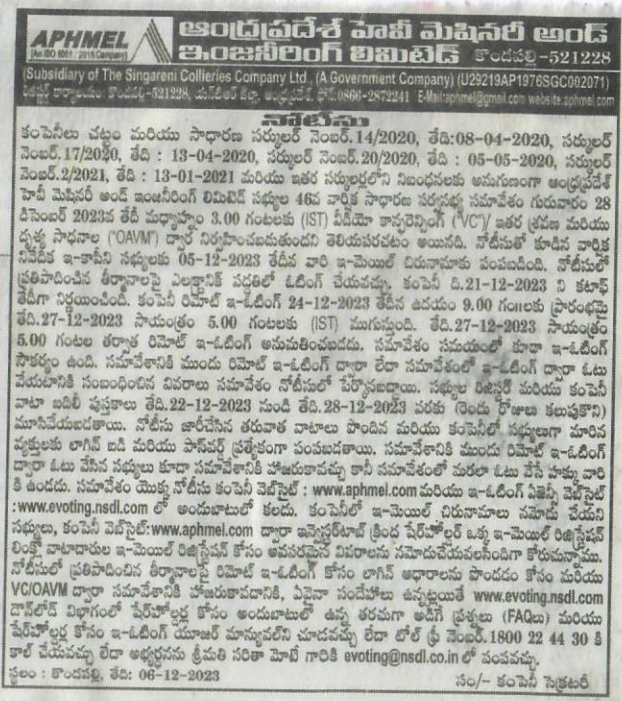 APHMEL
[An ISO 9001 : 2015 Company]
ఆంధ్రప్రదేశ్ హెవీ మెషినరీ అండ్
ఇంజనీరింగ్ లిమిటెడ్ కొండపల్లి-521228
(Subsidiary of The Singareni Collieries Company Ltd., (A Government Company) (U29219AP1976SGC002071)
రిజిస్టర్డ్ కార్యాలయం: కొండపల్లి-521228, ఎన్‌టీఆర్ జిల్లా, ఆంధ్రప్రదేశ్, ఫోన్.0866-2872241 E-Mail:aphmel@gmail.com website.aphmel.com
నోటీసు
కంపెనీలు చట్టం మరియు సాధారణ సర్క్యులర్ నెంబర్.14/2020, తేది:08-04-2020, సర్క్యులర్
నెంబర్.17/2020, తేది : 13-04-2020, సర్క్యులర్ నెంబర్.20/2020, తేది : 05-05-2020, సర్క్యులర్
నెంబర్.2/2021, తేది : 13-01-2021 మరియు ఇతర సర్క్యులర్లలోని నిబంధనలకు అనుగుణంగా ఆంధ్రప్రదేశ్
హెవీ మెషినరీ అండ్ ఇంజనీరింగ్ లిమిటెడ్ సభ్యుల 46వ వార్షిక సాధారణ సర్వసభ్య సమావేశం గురువారం 28
డిసెంబర్ 2023వ తేదీ మధ్యాహ్నం 3.00 గంటలకు (IST) వీడియో కాన్ఫరెన్సింగ్ ("VC")/ ఇతర శ్రవణ మరియు
దృశ్య సాధనాల ("OAVM") ద్వార నిర్వహించబడుతుందని తెలియపరచటం అయినది. నోటీసుతో కూడిన వార్షిక
నివేదిక ఇ-కాపీని సభ్యులకు 05-12-2023 తేదీన వారి ఇ-మెయిల్ చిరునామాకు పంపబడింది. నోటీసులో
ప్రతిపాదించిన తీర్మానాలపై ఎలక్ట్రానిక్ పద్ధతిలో ఓటింగ్ చేయవచ్చు. కంపెనీ ది.21-12-2023 ని కటాఫ్
తేదీగా నిర్ణయించింది. కంపెనీ రిమోట్ ఇ-ఓటింగ్ 24-12-2023 తేదీన ఉదయం 9.00 గం||లకు ప్రారంభమై
తేది.27-12-2023 సాయంత్రం 5.00 గంటలకు (IST) ముగుస్తుంది. తేది.27-12-2023 సాయంత్రం
5.00 గంటల తర్వాత రిమోట్ ఇ-ఓటింగ్ అనుమతించబడదు. సమావేశం సమయంలో కూడా ఇ-ఓటింగ్
సౌకర్యం ఉంది. సమావేశానికి ముందు రిమోట్ ఇ-ఓటింగ్ ద్వారా లేదా సమావేశంలో ఇ-ఓటింగ్ ద్వారా ఓటు
వేయటానికి సంబంధించిన వివరాలు సమావేశం నోటీసులో పేర్కొనబడ్డాయి. సభ్యుల రిజిస్టర్ మరియు కంపెనీ
వాటా బదిలీ పుస్తకాలు తేది.22-12-2023 నుండి తేది.28-12-2023 వరకు (రెండు రోజులు కలుపుకొని)
మూసివేయబడతాయి. నోటీసు జారీచేసిన తరువాత వాటాలు పొందిన మరియు కంపెనీలో సభ్యులుగా మారిన
వ్యక్తులకు లాగిన్ ఐడి మరియు పాస్‌వర్డ్ ప్రత్యేకంగా పంపబడతాయి. సమావేశానికి ముందు రిమోట్ ఇ-ఓటింగ్
ద్వారా ఓటు వేసిన సభ్యులు కూడా సమావేశానికి హాజరుకావచ్చు కానీ సమావేశంలో మరలా ఓటు వేసే హక్కు వారి
కి ఉండదు. సమావేశం యొక్క నోటీసు కంపెనీ వెబ్‌సైట్ : www.aphmel.com మరియు ఇ-ఓటింగ్ ఏజెన్సీ వెబ్‌సైట్
:www.evoting.nsdl.com లో అందుబాటులో కలదు. కంపెనీలో ఇ-మెయిల్ చిరునామాలు నమోదు చేయని
సభ్యులు, కంపెనీ వెబ్‌సైట్:www.aphmel.com ద్వారా ఇన్వెస్టర్‌టాబ్ క్రింద షేర్‌హోల్డర్ ఒక్క ఇ-మెయిల్ రిజిస్ట్రేషన్
లింక్‌లో వాటాదారుల ఇ-మెయిల్ రిజిస్ట్రేషన్ కోసం అవసరమైన వివరాలను నమోదుచేయవలసిందిగా కోరుచున్నాము.
నోటీసులో ప్రతిపాదించిన తీర్మానాలపై రిమోట్ ఇ-ఓటింగ్ కోసం లాగిన్ ఆధారాలను పొందడం కోసం మరియు
VC/OAVM ద్వారా సమావేశానికి హాజరుకావడానికి, ఏవైనా సందేహాలు ఉన్నట్లయితే www.evoting.nsdl.com
డౌన్‌లోడ్ విభాగంలో షేర్‌హోల్డర్ల కోసం అందుబాటులో ఉన్న తరచుగా అడిగే ప్రశ్నలు (FAQలు) మరియు
షేర్‌హోల్డర్ల కోసం ఇ-ఓటింగ్ యూజర్ మాన్యువల్‌ని చూడవచ్చు లేదా టోల్ ఫ్రీ నెంబర్.1800 22 44 30 కి
కాల్ చేయవచ్చు లేదా అభ్యర్థనను శ్రీమతి సరితా మోటే గారికి evoting@nsdl.co.in లో పంపవచ్చు.
స్థలం : కొండపల్లి, తేది: 06-12-2023
సం/- కంపెనీ సెక్రటరీ